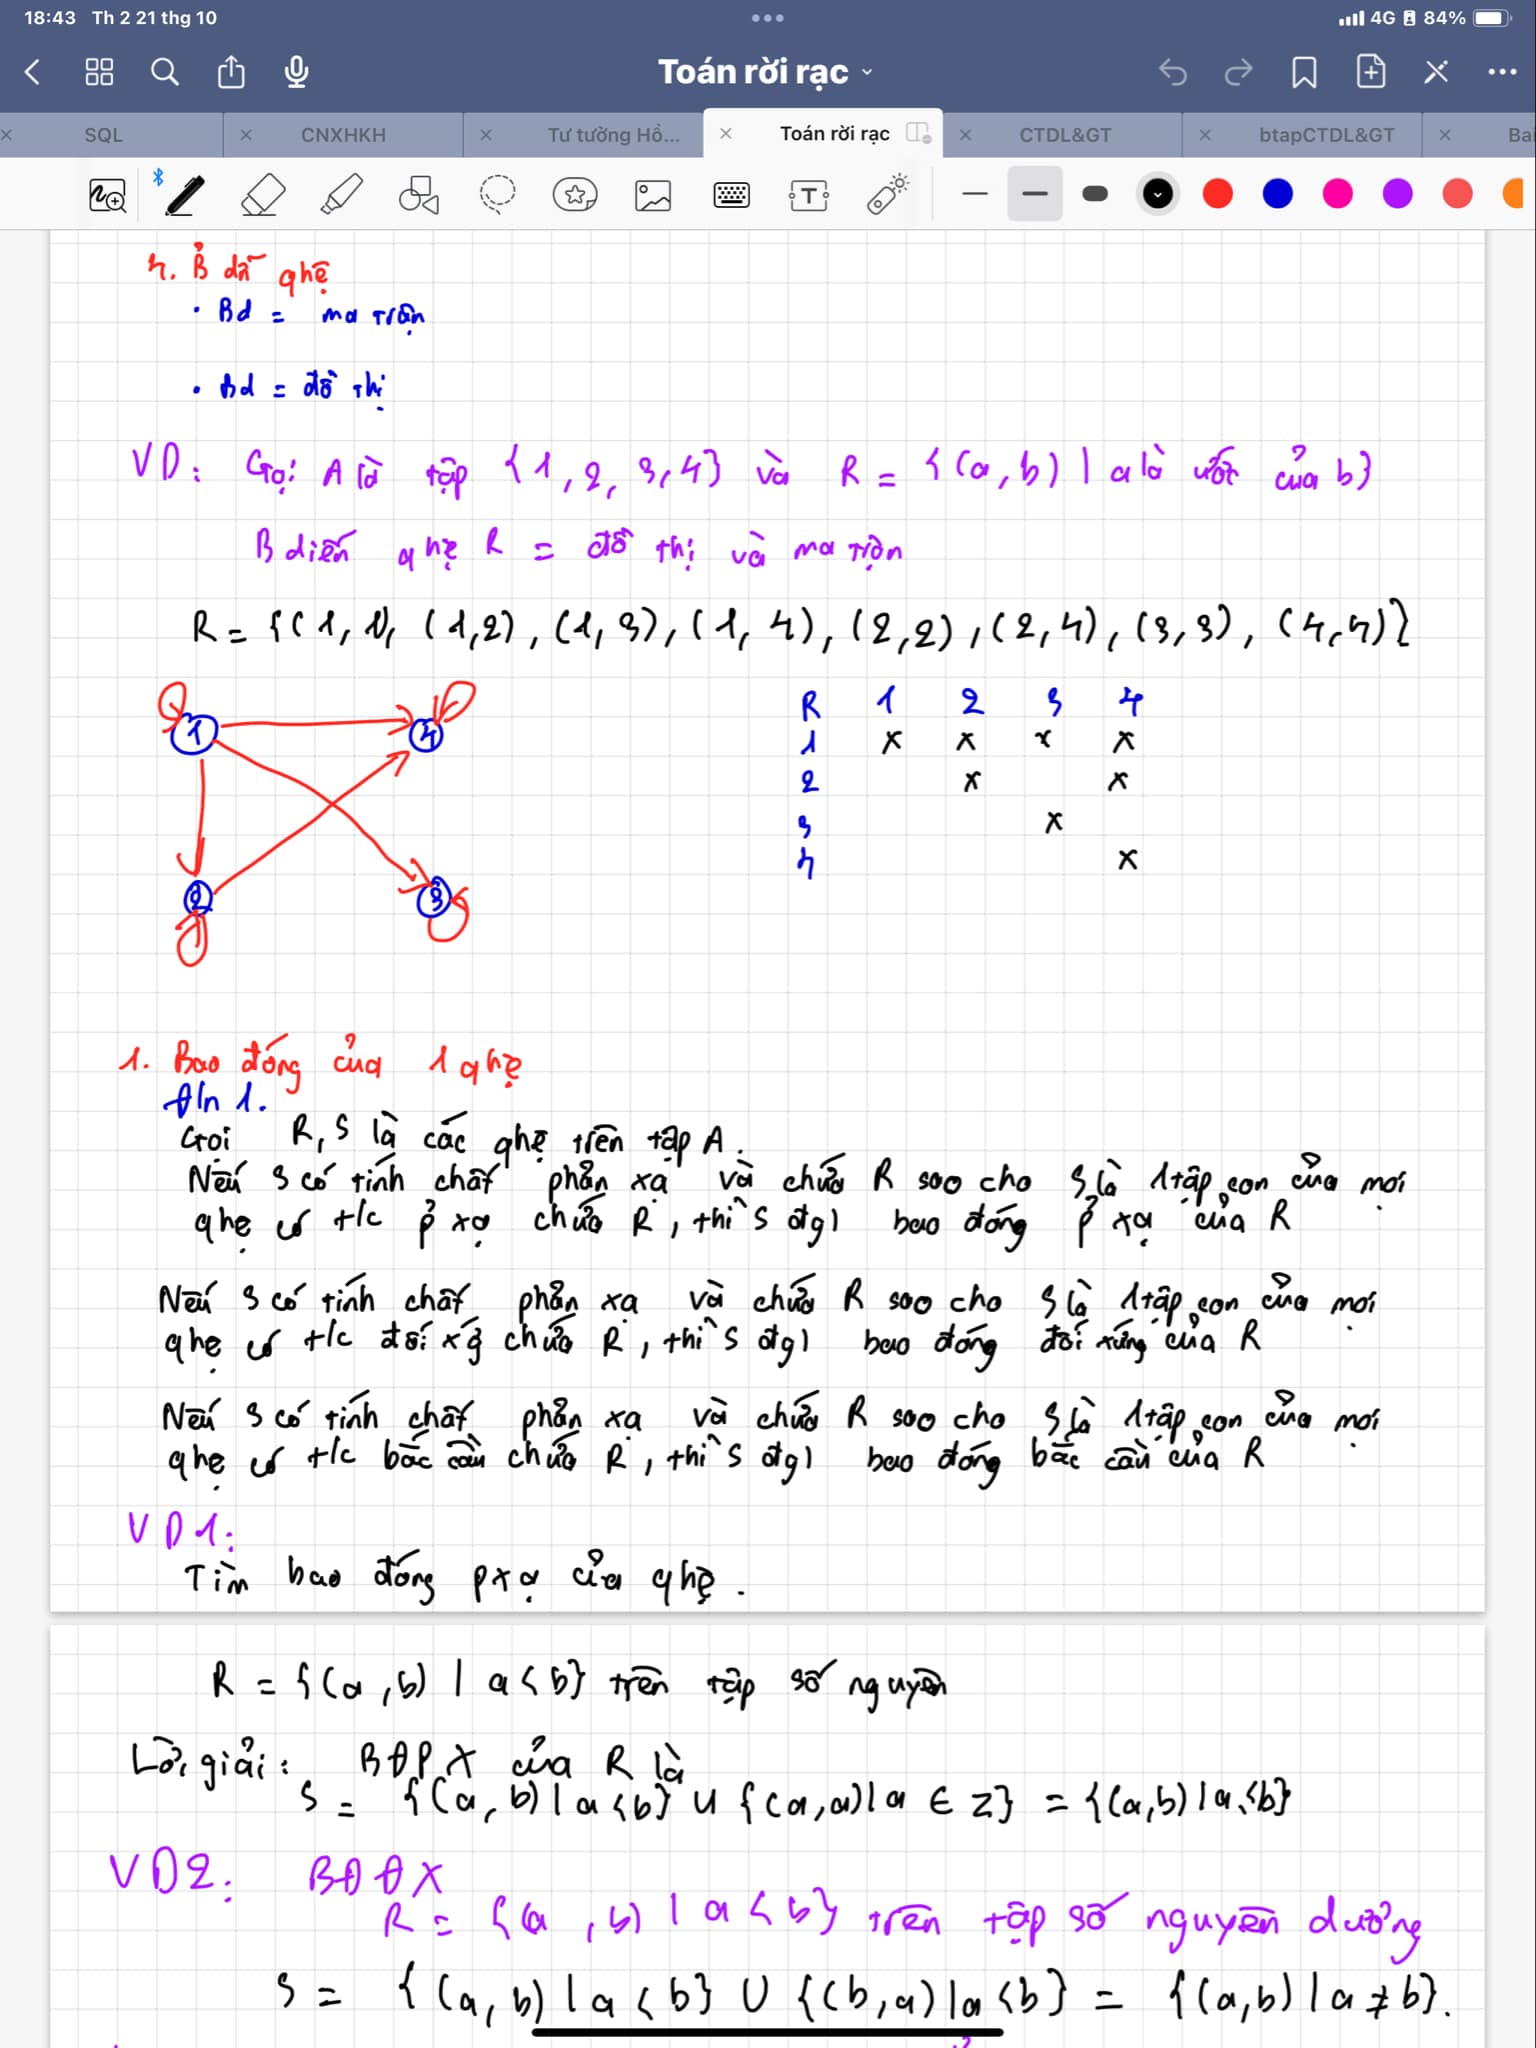 18:43 Th 2 21 thg 10
4G 84%
Toán rời rạc
SQL
CNXHKH
Tư tưởng Hồ...
Toán rời rạc
CTDL&GT
btapCTDL&GT
Bai
4. B diễn qhệ
• Bd = ma trận
• Bd = đồ thị
VD: Gọi A là tập {1, 2, 3, 4} và R = {(a, b) | a là ước của b}
B diễn qhệ R = đồ thị và ma trận
R = {(1, 1), (1,2), (1, 3), (1, 4), (2,2), (2,4), (3,3), (4,4)}
1 4
2 3
R 1 2 3 4
1 x x x x
2 x x
3 x
4 x
1. Bao đóng của 1 qhệ
Đ/n 1.
Gọi R, S là các qhệ trên tập A.
Nếu S có tính chất phản xạ và chứa R sao cho S là 1 tập con của mọi
qhệ có t/c p xạ chứa R, thì S đgl bao đóng p xạ của R
Nếu S có tính chất phản xạ và chứa R sao cho S là 1 tập con của mọi
qhệ có t/c đối xg chứa R, thì S đgl bao đóng đối xứng của R
Nếu S có tính chất phản xạ và chứa R sao cho S là 1 tập con của mọi
qhệ có t/c bắc cầu chứa R, thì S đgl bao đóng bắc cầu của R
VD1:
Tìm bao đóng pxạ của qhệ.
R = {(a, b) | a < b} trên tập số nguyên
Lời giải: BĐPX của R là
S = {(a, b) | a < b} ∪ {(a,a) | a ∈ Z} = {(a,b) | a ≤ b}
VD2: BĐĐX
R = {(a, b) | a < b} trên tập số nguyên dương
S = {(a, b) | a < b} ∪ {(b, a) | a < b} = {(a,b) | a ≠ b}.